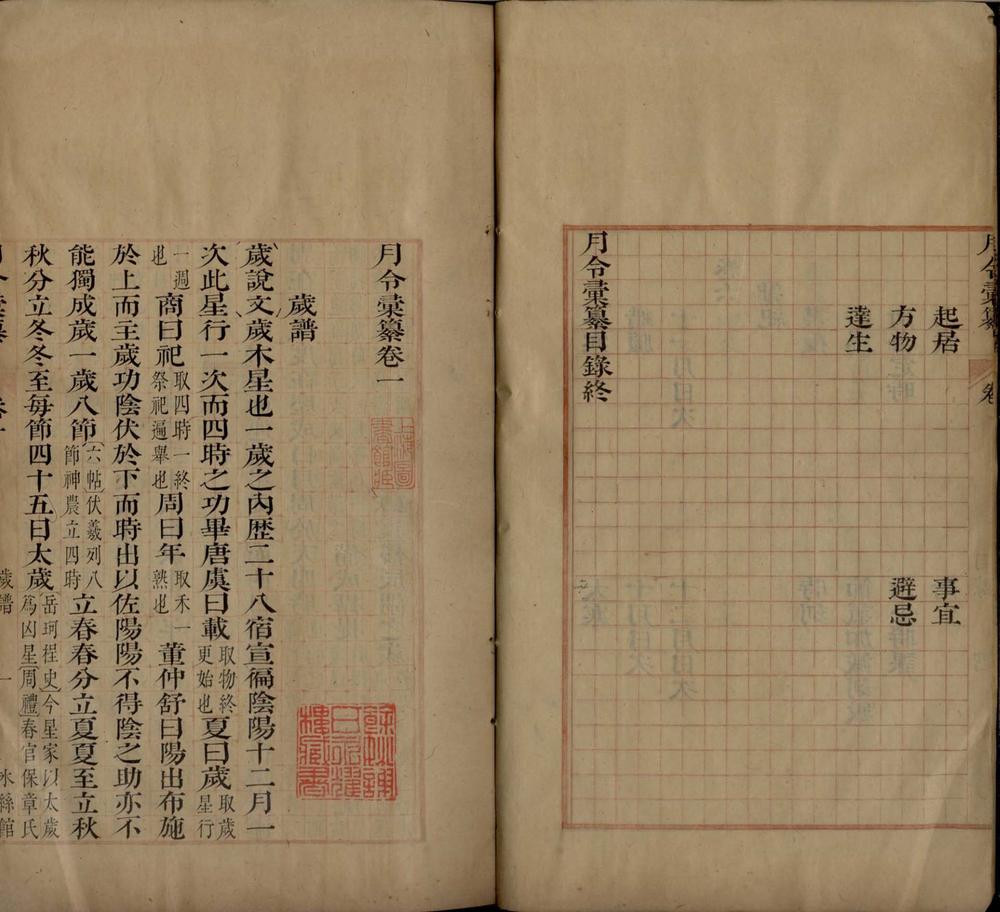 月令彚纂
卷
起居
事宜
方物
避忌
達生
月令彚纂目錄終
月令彚纂卷一
上海圖書館藏
餘姚謝氏永耀樓藏書
歲譜
歲說文歲木星也一歲之內歷二十八宿宣徧陰陽十二月一
次此星行一次而四時之功畢唐虞曰載取物終更始也夏曰歲取歲星行
一週也商曰祀取四時一終祭祀遍舉也周曰年取禾一熟也董仲舒曰陽出布施
於上而主歲功陰伏於下而時出以佐陽陽不得陰之助亦不
能獨成歲一歲八節六帖伏羲列八節神農立四時立春春分立夏夏至立秋
秋分立冬冬至每節四十五日太歲岳珂桯史今星家以太歲爲凶星周禮春官保章氏
月令彚纂
卷一
歲譜
一